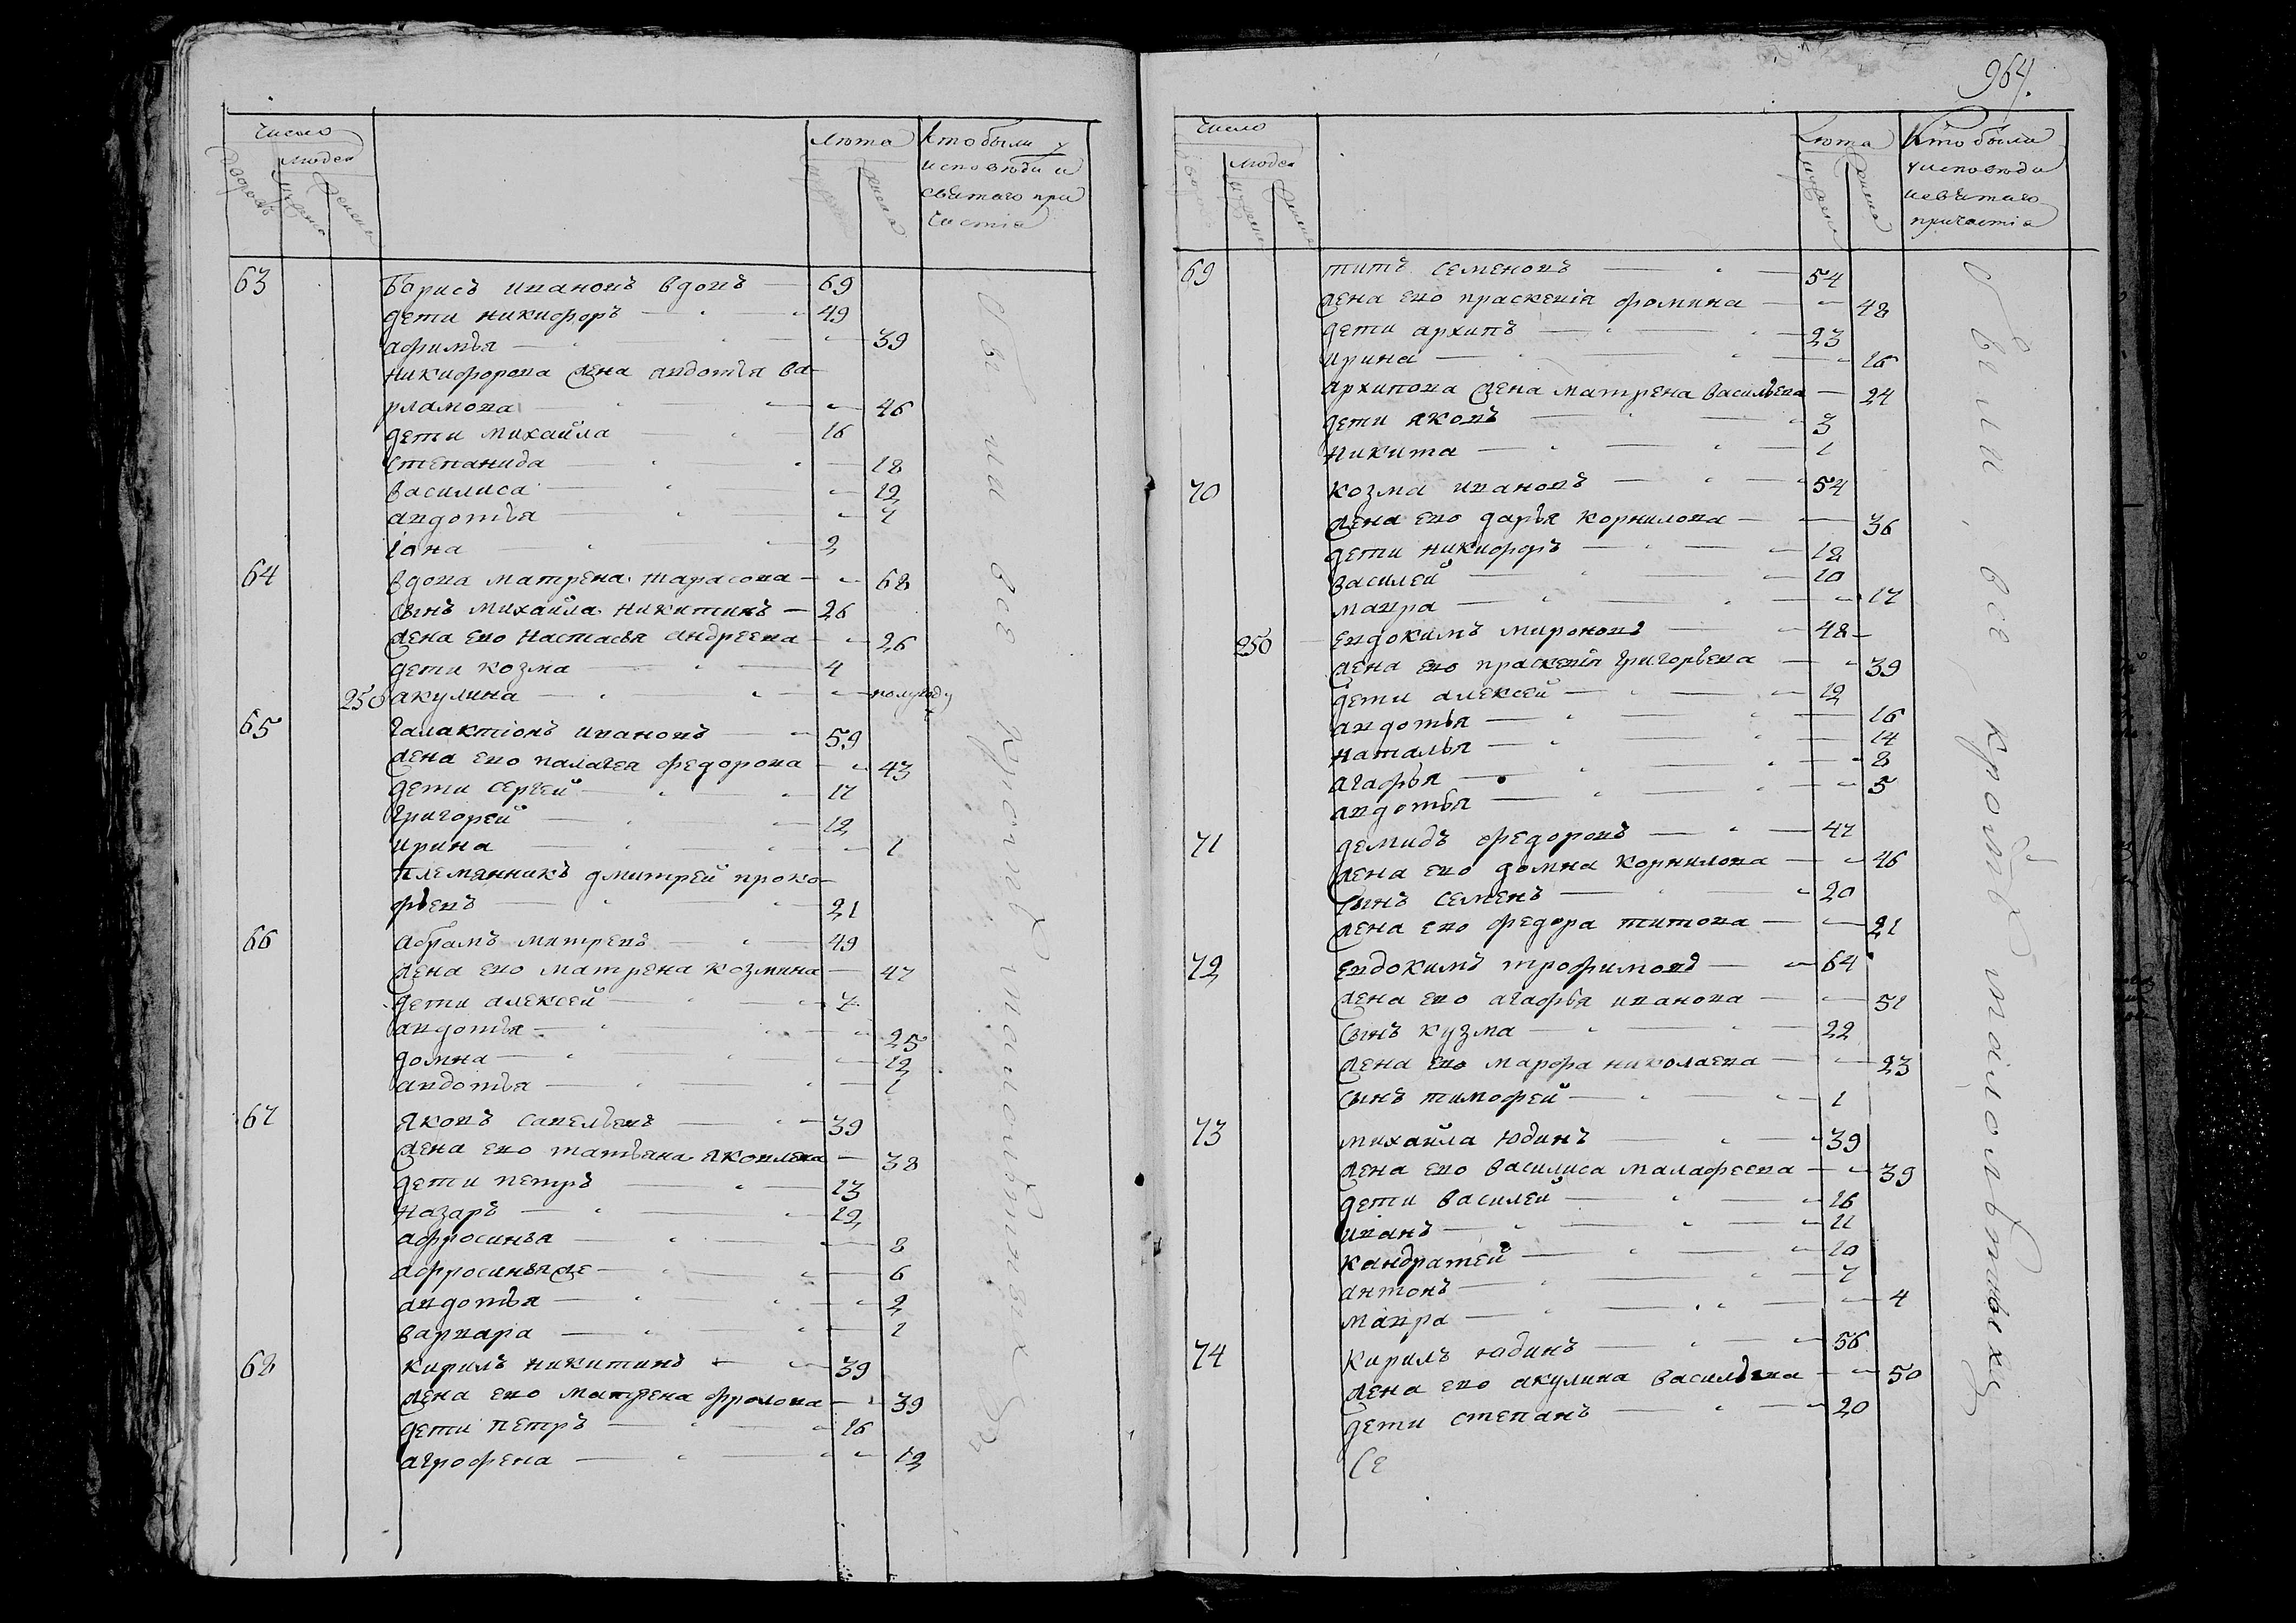 Число
людей
дворовъ
мужеска
женска
лѣта
мужеска
женска
Кто были у
исповѣди и
святаго при
частія
63 Борисъ ивановъ вдовъ 69
дети никифоръ 49
афимья 39
никифорова жена авдотья ва-
рламова 46
дети михайла 16
степанида 18
василиса 12
авдотья 7
іона 2
64 вдова матрена тарасова 68
сынъ михайла никитинъ 26
жена ево настасья андреева 26
дети козма 4
250 акулина полугоду
65 Галактіонъ ивановъ 59
жена ево палагея федорова 43
дети сергей 17
григорей 12
ирина 1
племянникъ дмитрей проко-
фьевъ 21
66 абрамъ митревъ 49
жена ево матрена козмина 47
дети алексей 7
авдотья 25
домна 12
авдотья 1
67 яковъ савельевъ 39
жена ево татьяна яковлева 38
дети петръ 13
назаръ 12
афросинья 8
афросинья же 6
авдотья 2
варвара 1
68 кирилъ никитинъ 39
жена ево матрена фролова 39
дети петръ 16
аграфена 12
были все кроме малолѣтныхъ
964.
Число
людей
дворовъ
мужеска
женска
Лѣта
мужеска
женска
Кто были
у исповѣди
и святаго
причастія
69 титъ семеновъ 54
жена ево праскевія фомина 48
дети архипъ 23
ирина 16
архипова жена матрена васильева 24
дети яковъ 3
никита 1
70 козма ивановъ 54
жена ево дарья корнилова 36
дети никифоръ 18
василей 10
мавра 17
250 евдокимъ мироновъ 48
жена ево праскевія григорьева 39
дети алексей 12
авдотья 16
наталья 14
агафья 8
авдотья 5
71 демидъ федоровъ 47
жена ево домна корнилова 46
сынъ семенъ 20
жена ево федора титова 21
72 евдокимъ трофимовъ 64
жена ево агафья иванова 51
сынъ кузма 22
жена ево марфа николаева 23
сынъ тимофей 1
73 михайла юдинъ 39
жена ево василиса малафеева 39
дети василей 16
иванъ 11
кандратей 10
антонъ 7
мавра 4
74 Кирилъ юдинъ 56
жена ево акулина васильева 50
дети степанъ 20
Се
были все кроме малолѣтныхъ